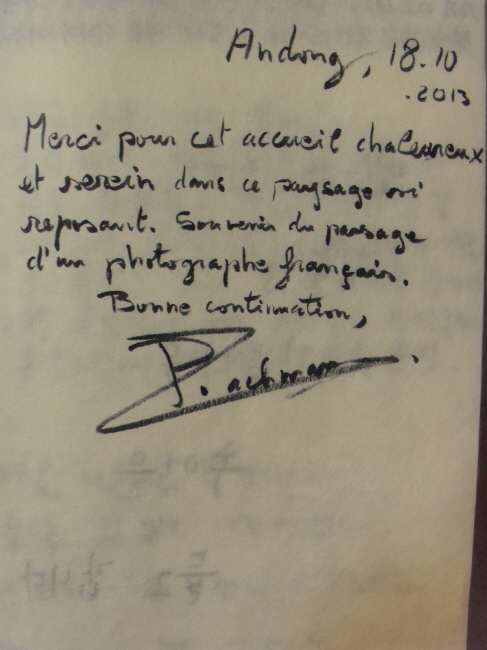 Andong, 18.10
.2013
Merci pour cet accueil chaleureux
et serein dans ce paysage si
reposant. Souvenir du passage
d'un photographe français.
Bonne continuation,